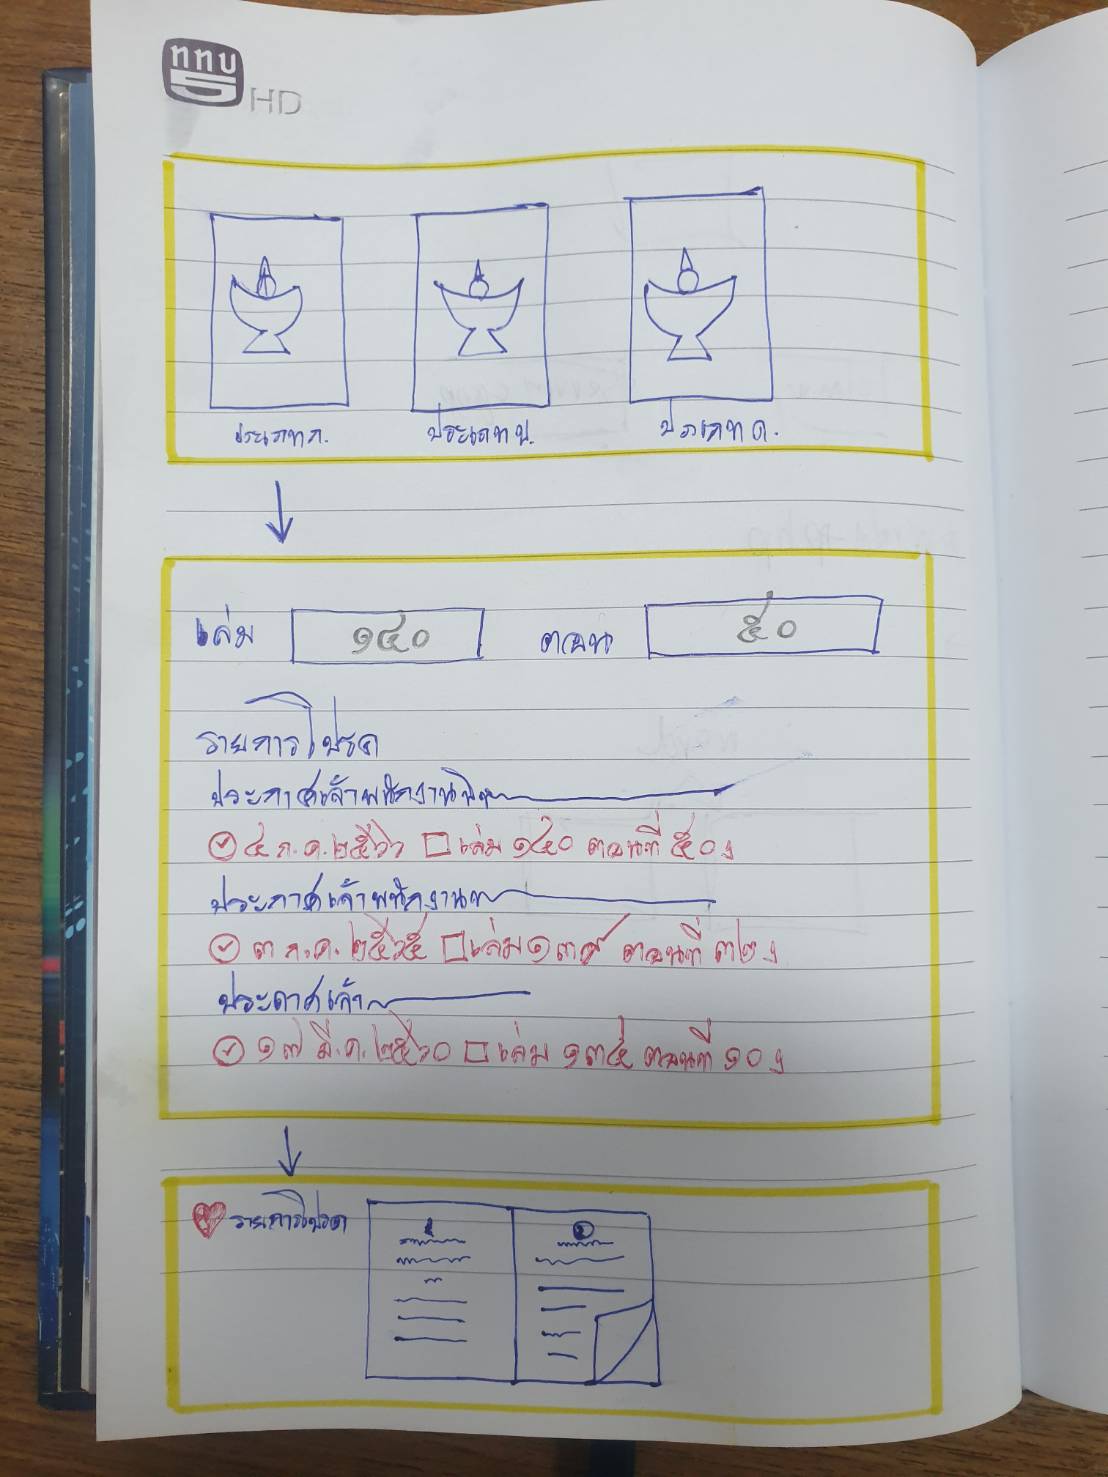 ททบ
5 HD
ประเภท ก.
ประเภท ข.
ประเภท ค.
เล่ม ๑๔๐ ตอน ๕๐
รายการโปรด
ประกาศเจ้าพนักงาน
๔ ก.ค. ๒๕๖๖ เล่ม ๑๔๐ ตอนที่ ๕๐ ง
ประกาศเจ้าพนักงาน
๓ ก.ค. ๒๕๖๕ เล่ม ๑๓๙ ตอนที่ ๓๒ ง
ประกาศเจ้า
๑๗ มี.ค. ๒๕๖๐ เล่ม ๑๓๔ ตอนที่ ๑๐ ง
รายการโปรด